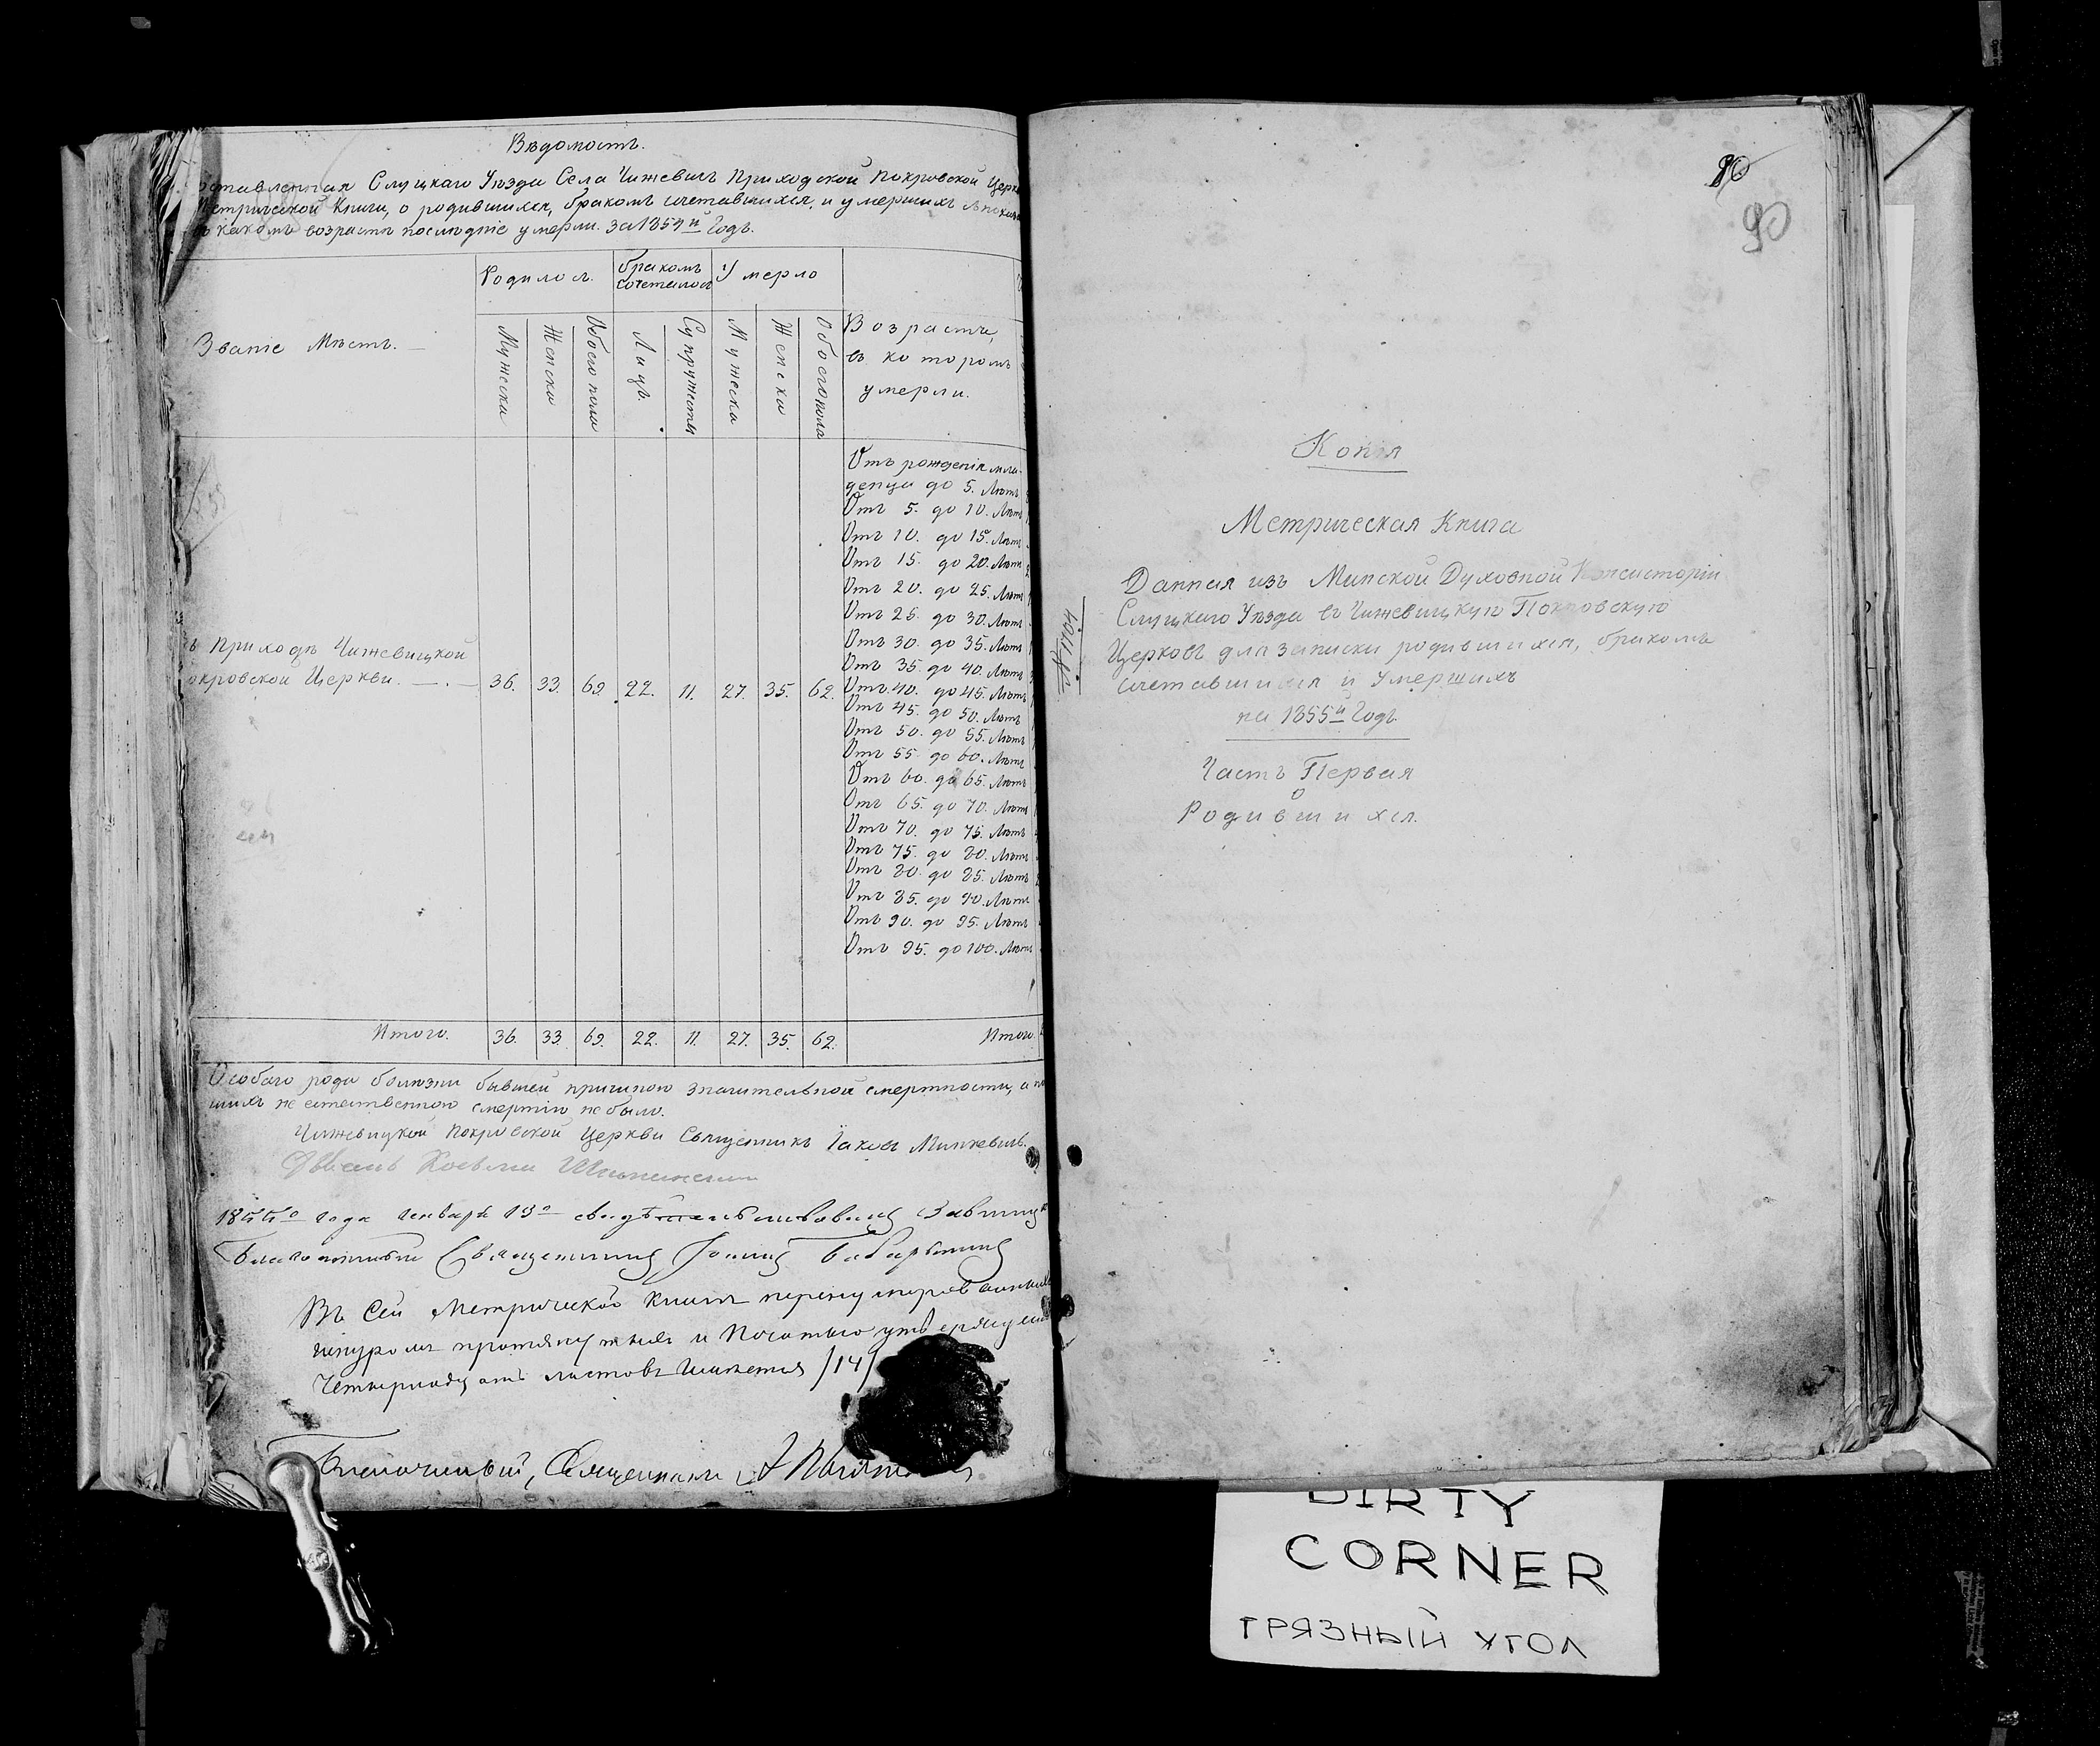 Вѣдомость.
ставленная Слуцкаго Уѣзда Села Чижевичъ Приходской Покровской Церк
Метрической Книги, о родившихся, бракомъ сочетавшихся, и умершихъ
какомъ возрастѣ послѣдніе умерли. за 1854й Годъ.
Званіе Мѣстъ.
Родилось.
бракомъ сочеталось
Умерло
Возрастъ, въ которомъ умерли.
Мужеска
Женска
Обоего пола
Лицъ.
Супружествъ
Мужеска
Женска
Обоего пола
Отъ рожденія мла-
денцы до 5. Лѣтъ
Отъ 5. до 10. Лѣтъ
Отъ 10. до 15. Лѣтъ
Отъ 15. до 20. Лѣтъ
Отъ 20. до 25. Лѣтъ
Отъ 25. до 30. Лѣтъ
Отъ 30. до 35. Лѣтъ
Отъ 35. до 40. Лѣтъ
Отъ 40. до 45. Лѣтъ
Отъ 45. до 50. Лѣтъ
Отъ 50. до 55. Лѣтъ
Отъ 55. до 60. Лѣтъ
Отъ 60. до 65. Лѣтъ
Отъ 65. до 70. Лѣтъ
Отъ 70. до 75. Лѣтъ
Отъ 75. до 80. Лѣтъ
Отъ 80. до 85. Лѣтъ
Отъ 85. до 90. Лѣтъ
Отъ 90. до 95. Лѣтъ
Отъ 95. до 100. Лѣтъ
ъ Приходѣ Чижевицкой
окровской Церкви. 36. 33. 69. 22. 11. 27. 35. 62.
Итого. 36. 33. 69. 22. 11. 27. 35. 62. Итого.
Особаго рода болѣзни бывшей причиною значительной смертности, а
шихъ не естественною смертію не было.
Чижевицкой Покровской Церкви Священникъ Іаковъ Минкевичъ.
1855го года Января 13го
Благочинный Священникъ
Въ сей Метрической книгѣ перенумерованныхъ
шнуромъ
Четырнадцать листовъ /14/
Благочинный, Священникъ
80
90
Копія
Метрическая Книга
Данная изъ Минской Духовной Консисторіи
Слуцкаго Уѣзда въ Чижевицкую Покровскую
Церковь для записки родившихся, бракомъ
сочетавшихся и Умершихъ
на 1855й Годъ.
Часть Первая
О
Родившихся.
DIRTY
CORNER
ГРЯЗНЫЙ УГОЛ